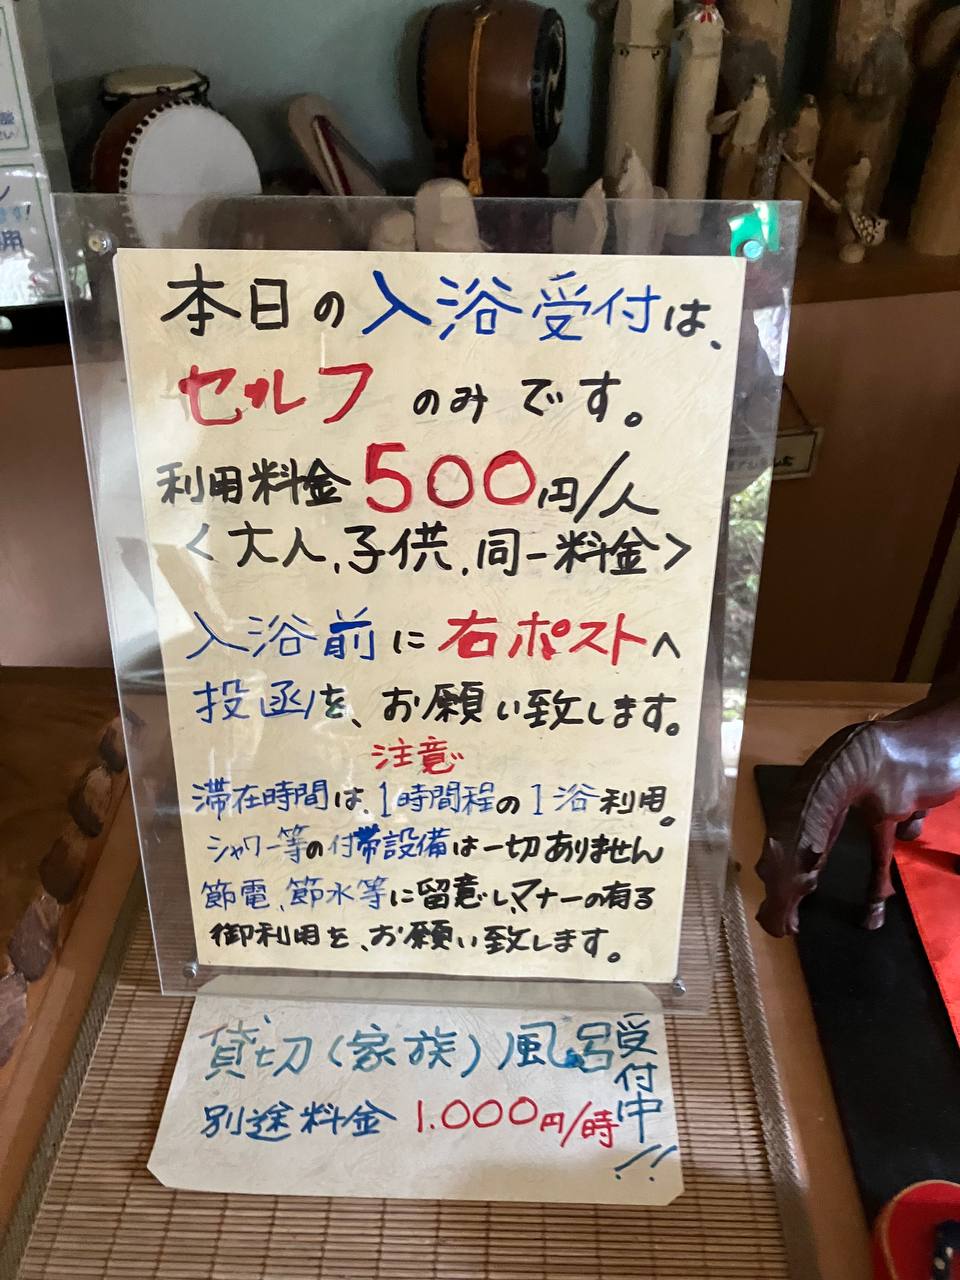 本日の入浴受付は、
セルフのみです。
利用料金500円/人
<大人、子供、同一料金>
入浴前に右ポストへ
投函を、お願い致します。
注意
滞在時間は、1時間程の1浴利用。
シャワー等の付帯設備は一切ありません
節電、節水等に留意し、マナーの有る
御利用を、お願い致します。
貸切(家族)風呂受付中!!
別途料金 1.000円/時